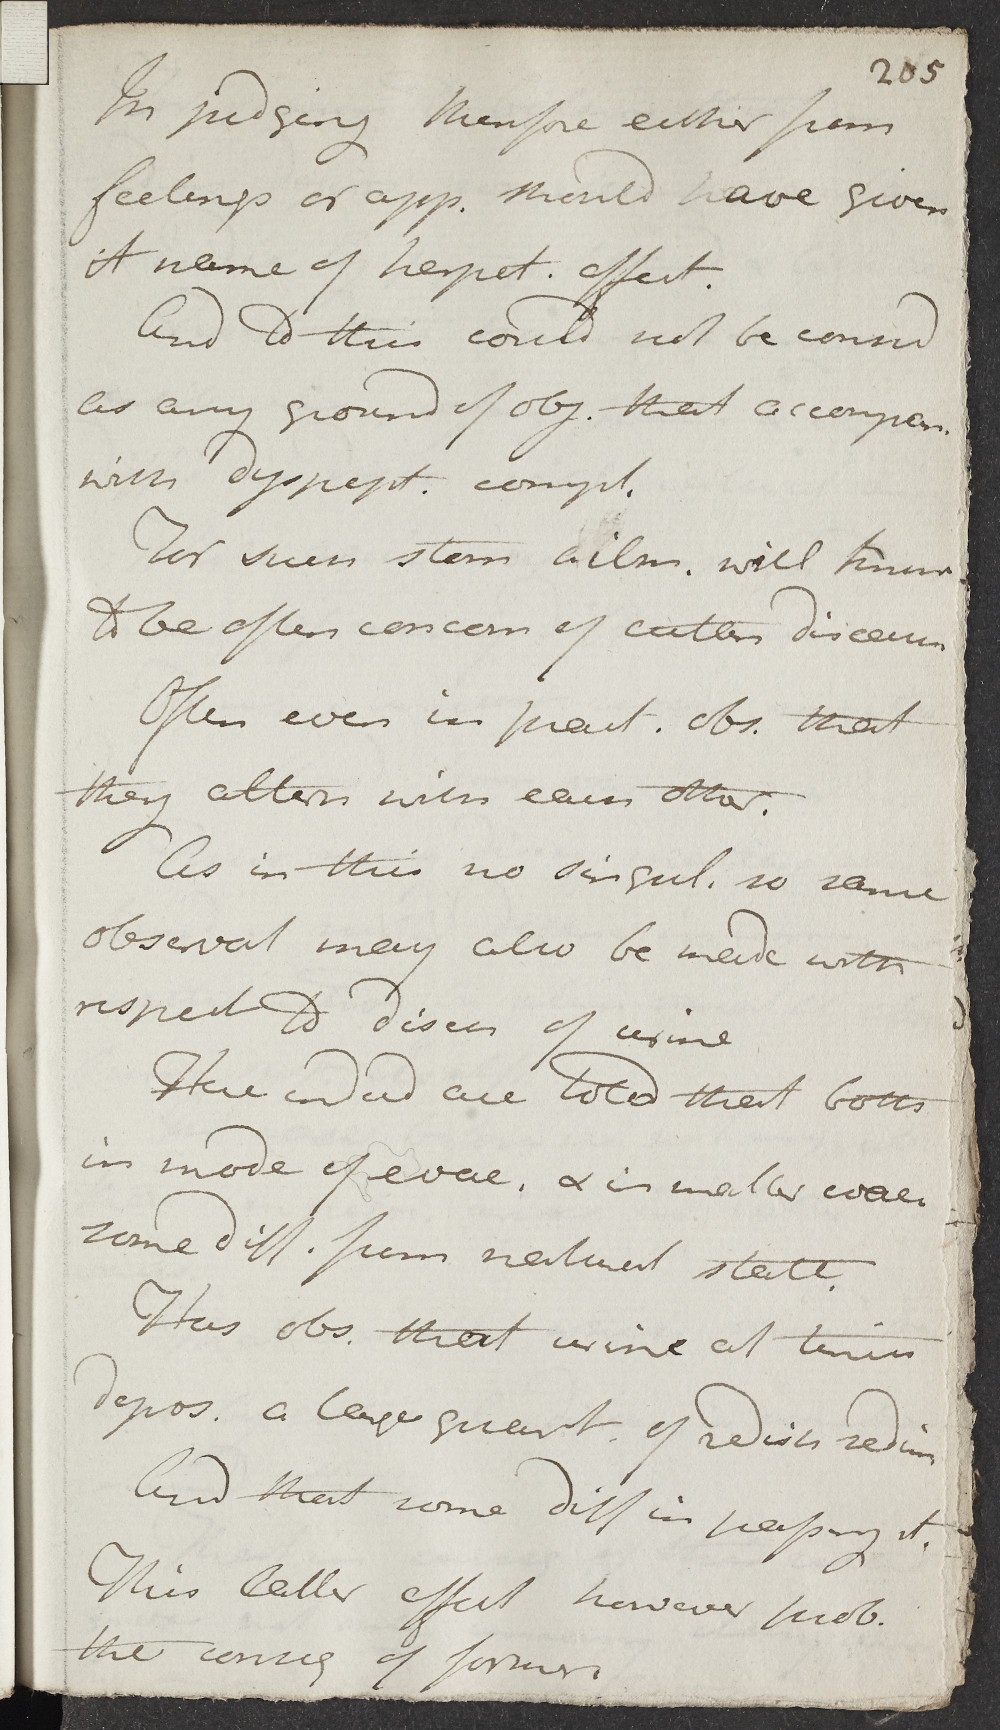 205
In judging therefore either from
feelings or app. should have given
it name of herpet. affect.
And to this could not be consid
as any ground of obj. that accompan.
with dyspept. compl.
For such stom ailm. will know
to be often concom of cutan diseases
Often even in pract. obs. that
they altern with each other.
As in this no singul. so same
observat may also be made with
respect to disch of urine
Here indeed are told that both
in mode of evac. & in matter evac
some diff. from natural state.
Has obs. that urine at times
depos. a large quant. of redish sedim
And that some diff in passing it.
This latter effect however prob.
the conseq of former.